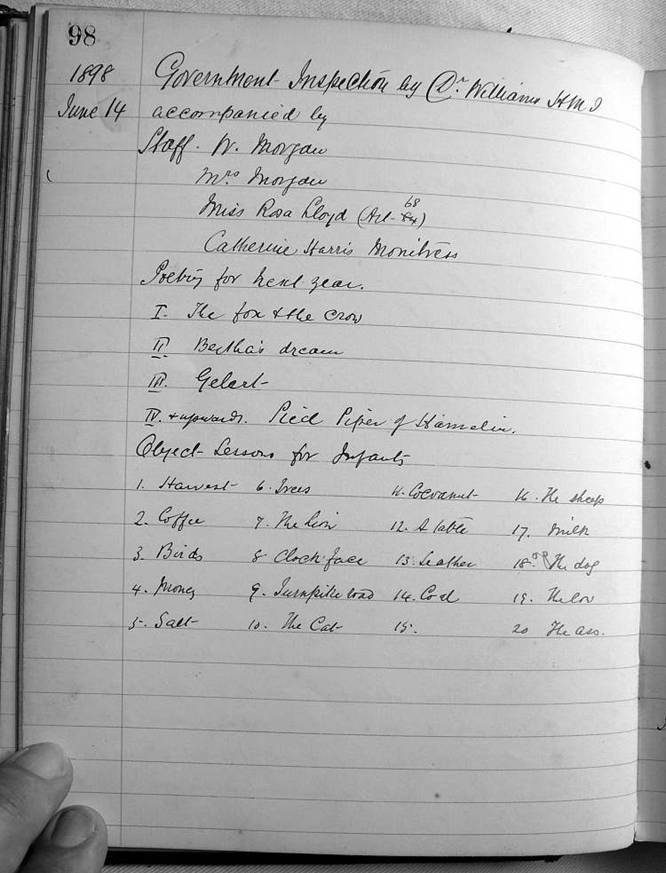 98
1898 Government Inspection by Dr. Williams H M I
June 14 accompanied by
Staff. W. Morgan
Mrs Morgan
Miss Rosa Lloyd (Art- 68)
Catherine Harris Monitress
Poetry for next year.
I. The fox & the crow
II Bertha's dream
III. Gelert-
IV. & upwards. Pied Piper of Hamelin.
Object Lessons for Infants
1. Harvest 6. Trees 11. Cocoanut 16. The sheep
2. Coffee 7. The lion 12. A table 17. Milk
3. Birds 8 Clock face 13. Leather 18. The dog
4. Money 9. Turnpike road 14. Coal 19. The cow
5. Salt 10. The Cat 15. 20 The ass.